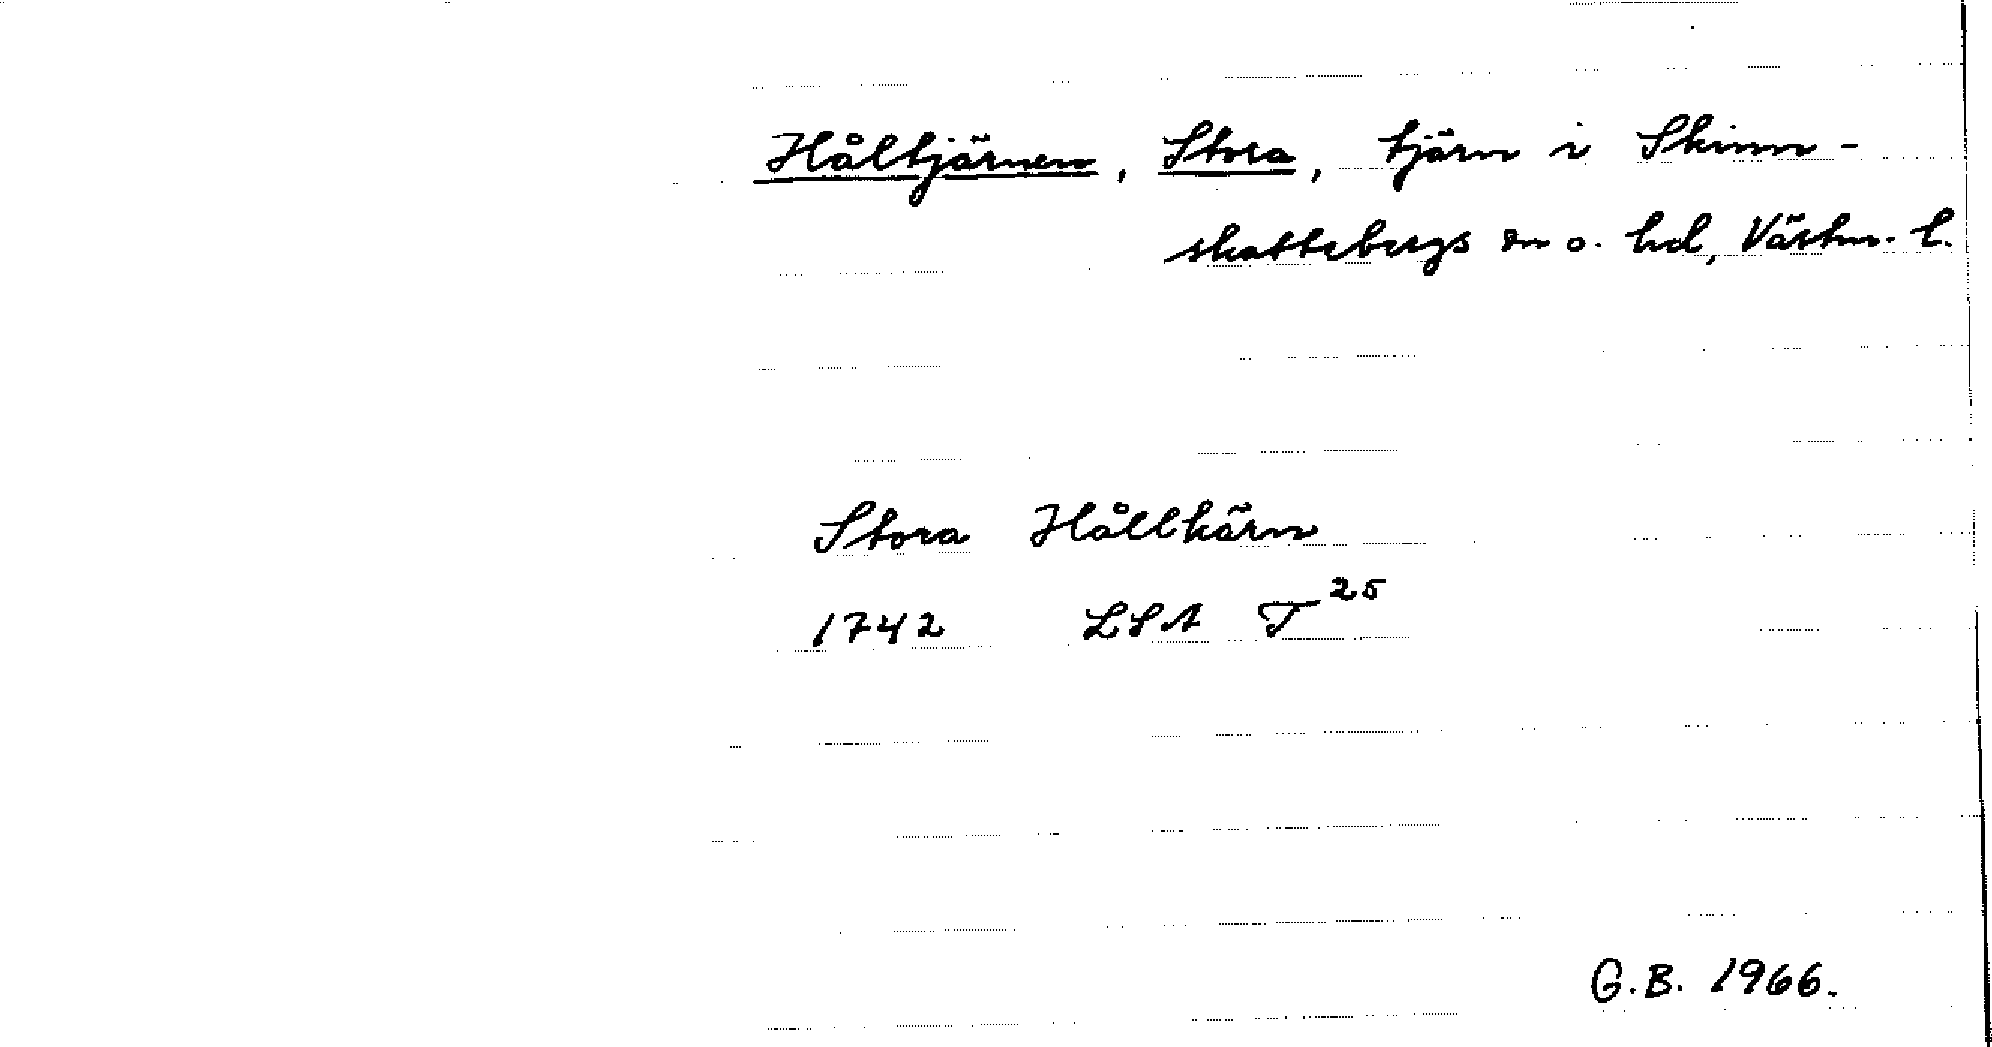 Håltjärnen, Stora, tjärn i Skinn-
skattebergs sn o. hd, Västm. l.
Stora Hållkärn
1742 LSA T 25
G.B. 1966.